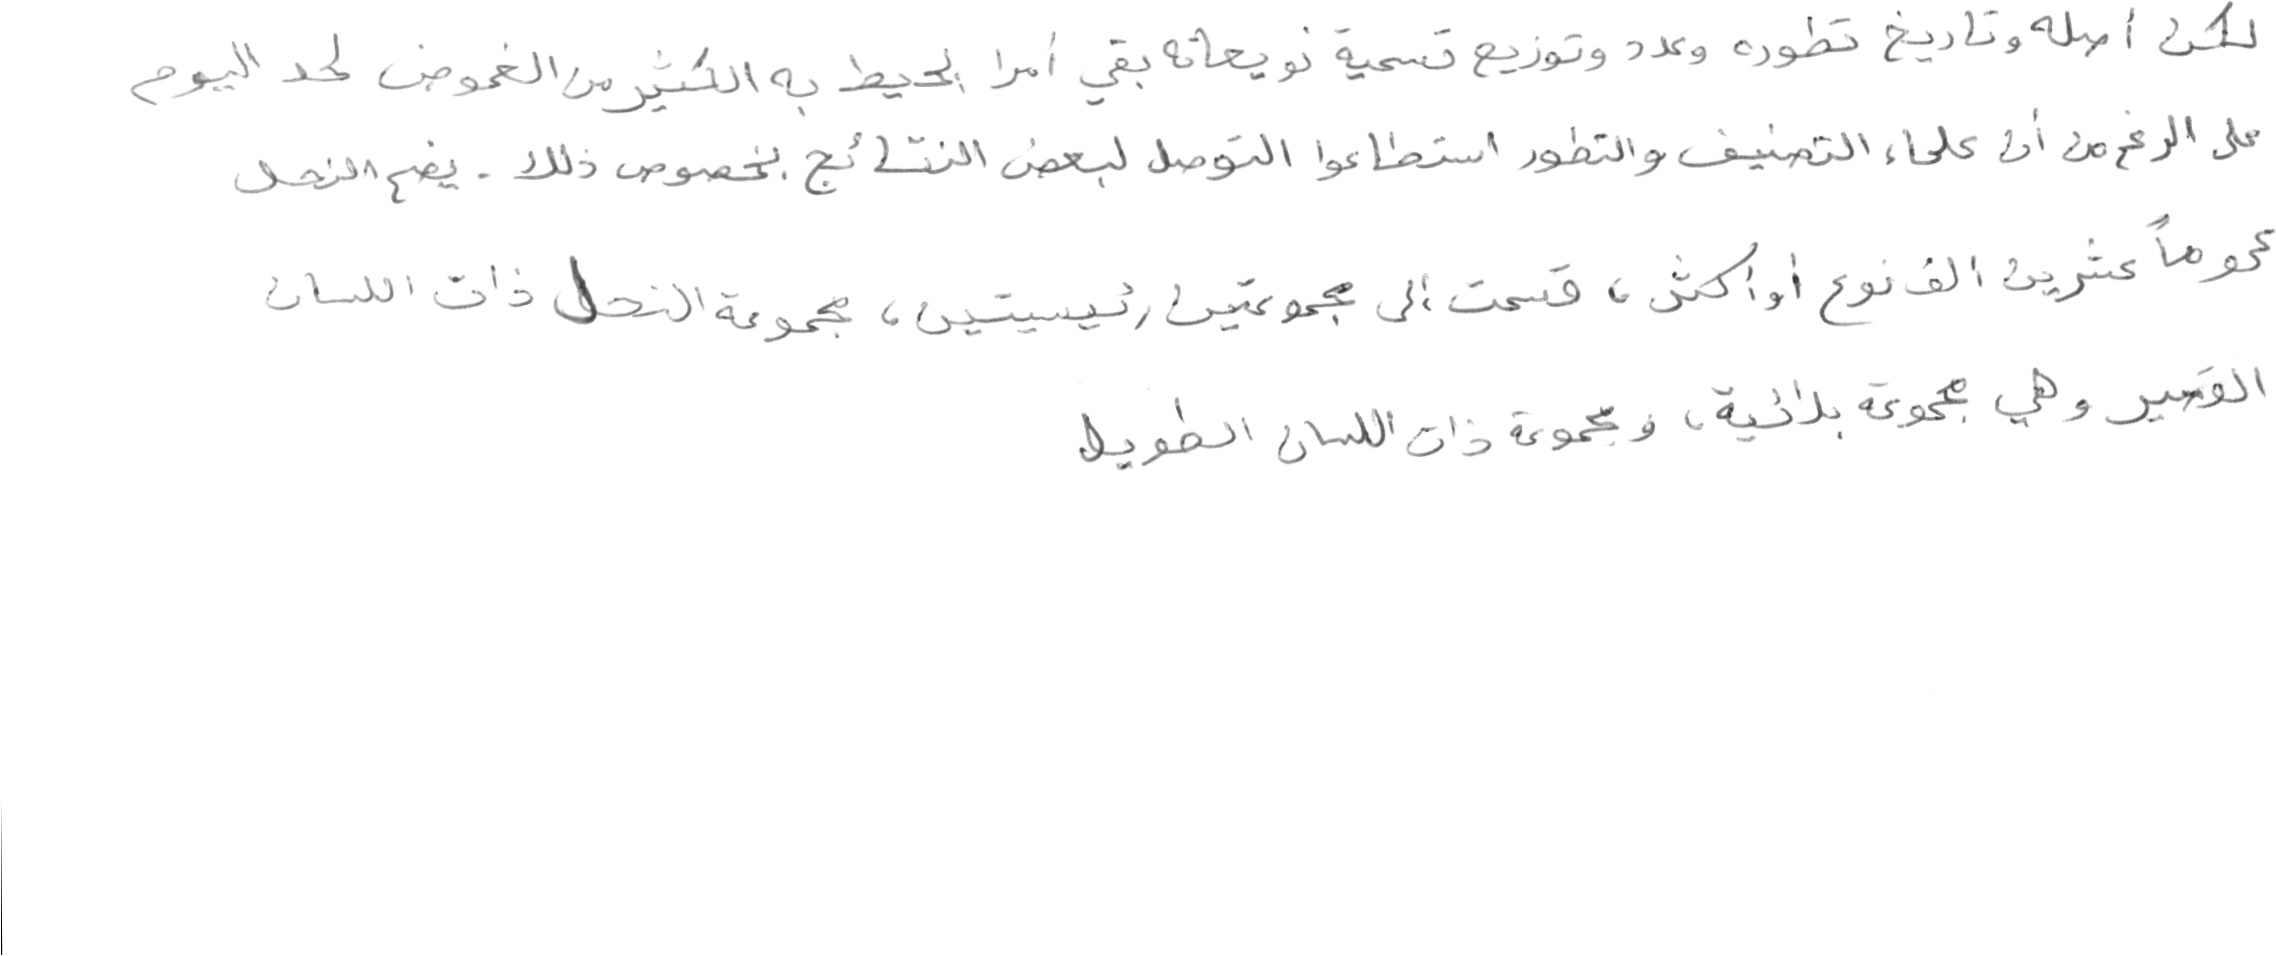 لكن أصله وتاريخ تطوره وعدد وتوزيع تسمية نويعاته بقي أمرا يحيط به الكثير من الغموض لحد اليوم
على الرغم من أن علماء التصنيف والتطور استطاعوا التوصل لبعض النتائج بخصوص ذلك . يضم النحل
عموماً عشرين الف نوع أو أكثر ، قسمت إلى مجموعتين رئيسيتين ، مجموعة النحل ذات اللسان
القصير وهي مجموعة بدائية ، ومجموعة ذات اللسان الطويل